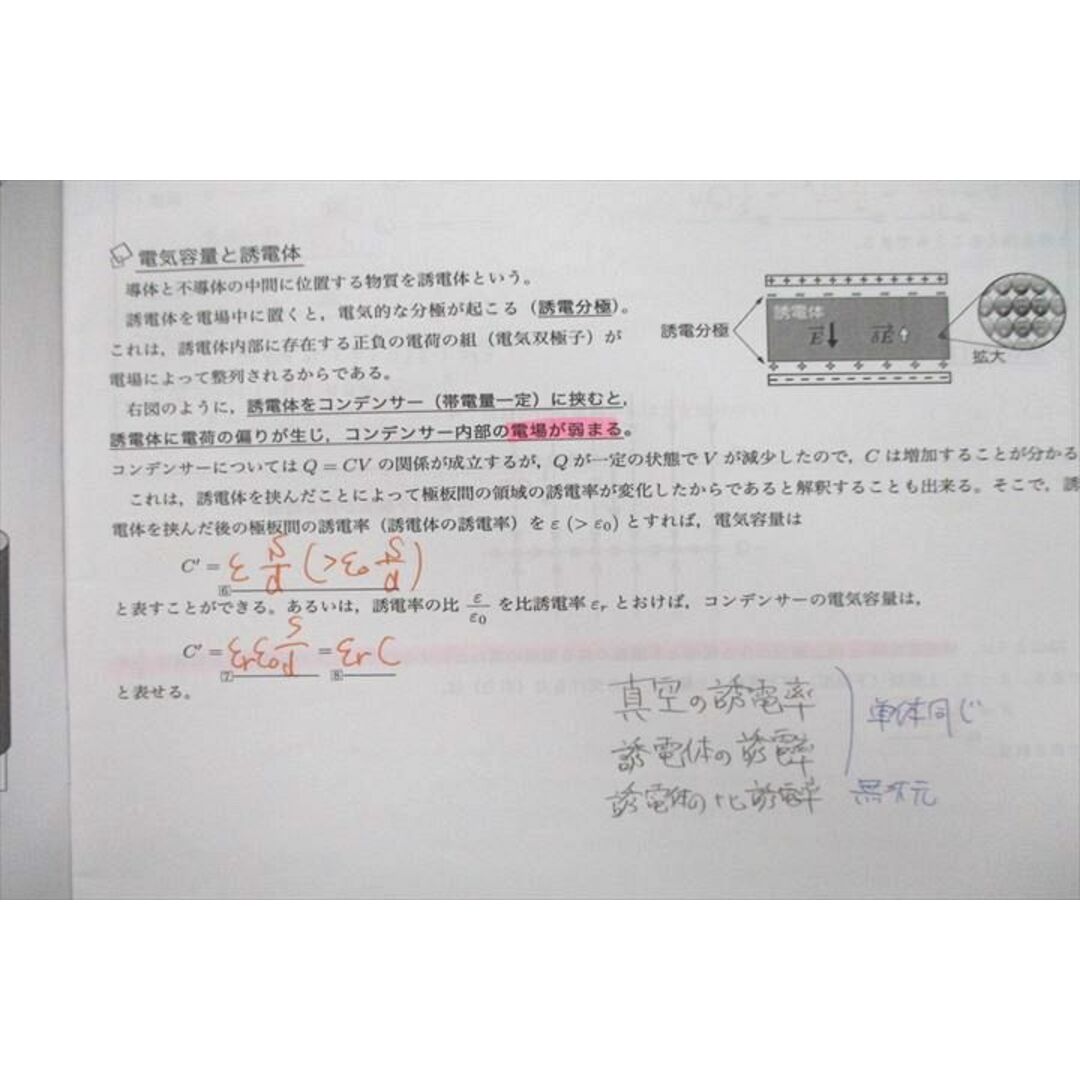 電気容量と誘電体
導体と不導体の中間に位置する物質を誘電体という。
誘電体を電場中に置くと，電気的な分極が起こる（誘電分極）。
これは，誘電体内部に存在する正負の電荷の組（電気双極子）が
電場によって整列されるからである。
右図のように，誘電体をコンデンサー（帯電量一定）に挟むと，
誘電体に電荷の偏りが生じ，コンデンサー内部の電場が弱まる。
誘電分極
誘電体
E↓ δE↑
拡大
コンデンサーについては Q = CV の関係が成立するが，Q が一定の状態で V が減少したので，C は増加することが分かる
これは，誘電体を挟んだことによって極板間の領域の誘電率が変化したからであると解釈することも出来る。そこで，誘
電体を挟んだ後の極板間の誘電率（誘電体の誘電率）を ε (> ε0) とすれば，電気容量は
C′ = 6 ε S/d (> ε0 S/d)
と表すことができる。あるいは，誘電率の比 ε/ε0 を比誘電率 εr とおけば，コンデンサーの電気容量は，
C′ = 7 εrε0 S/d = 8 εrC
と表せる。
真空の誘電率
誘電体の誘電率
単体同じ
誘電体の比誘電率 無次元